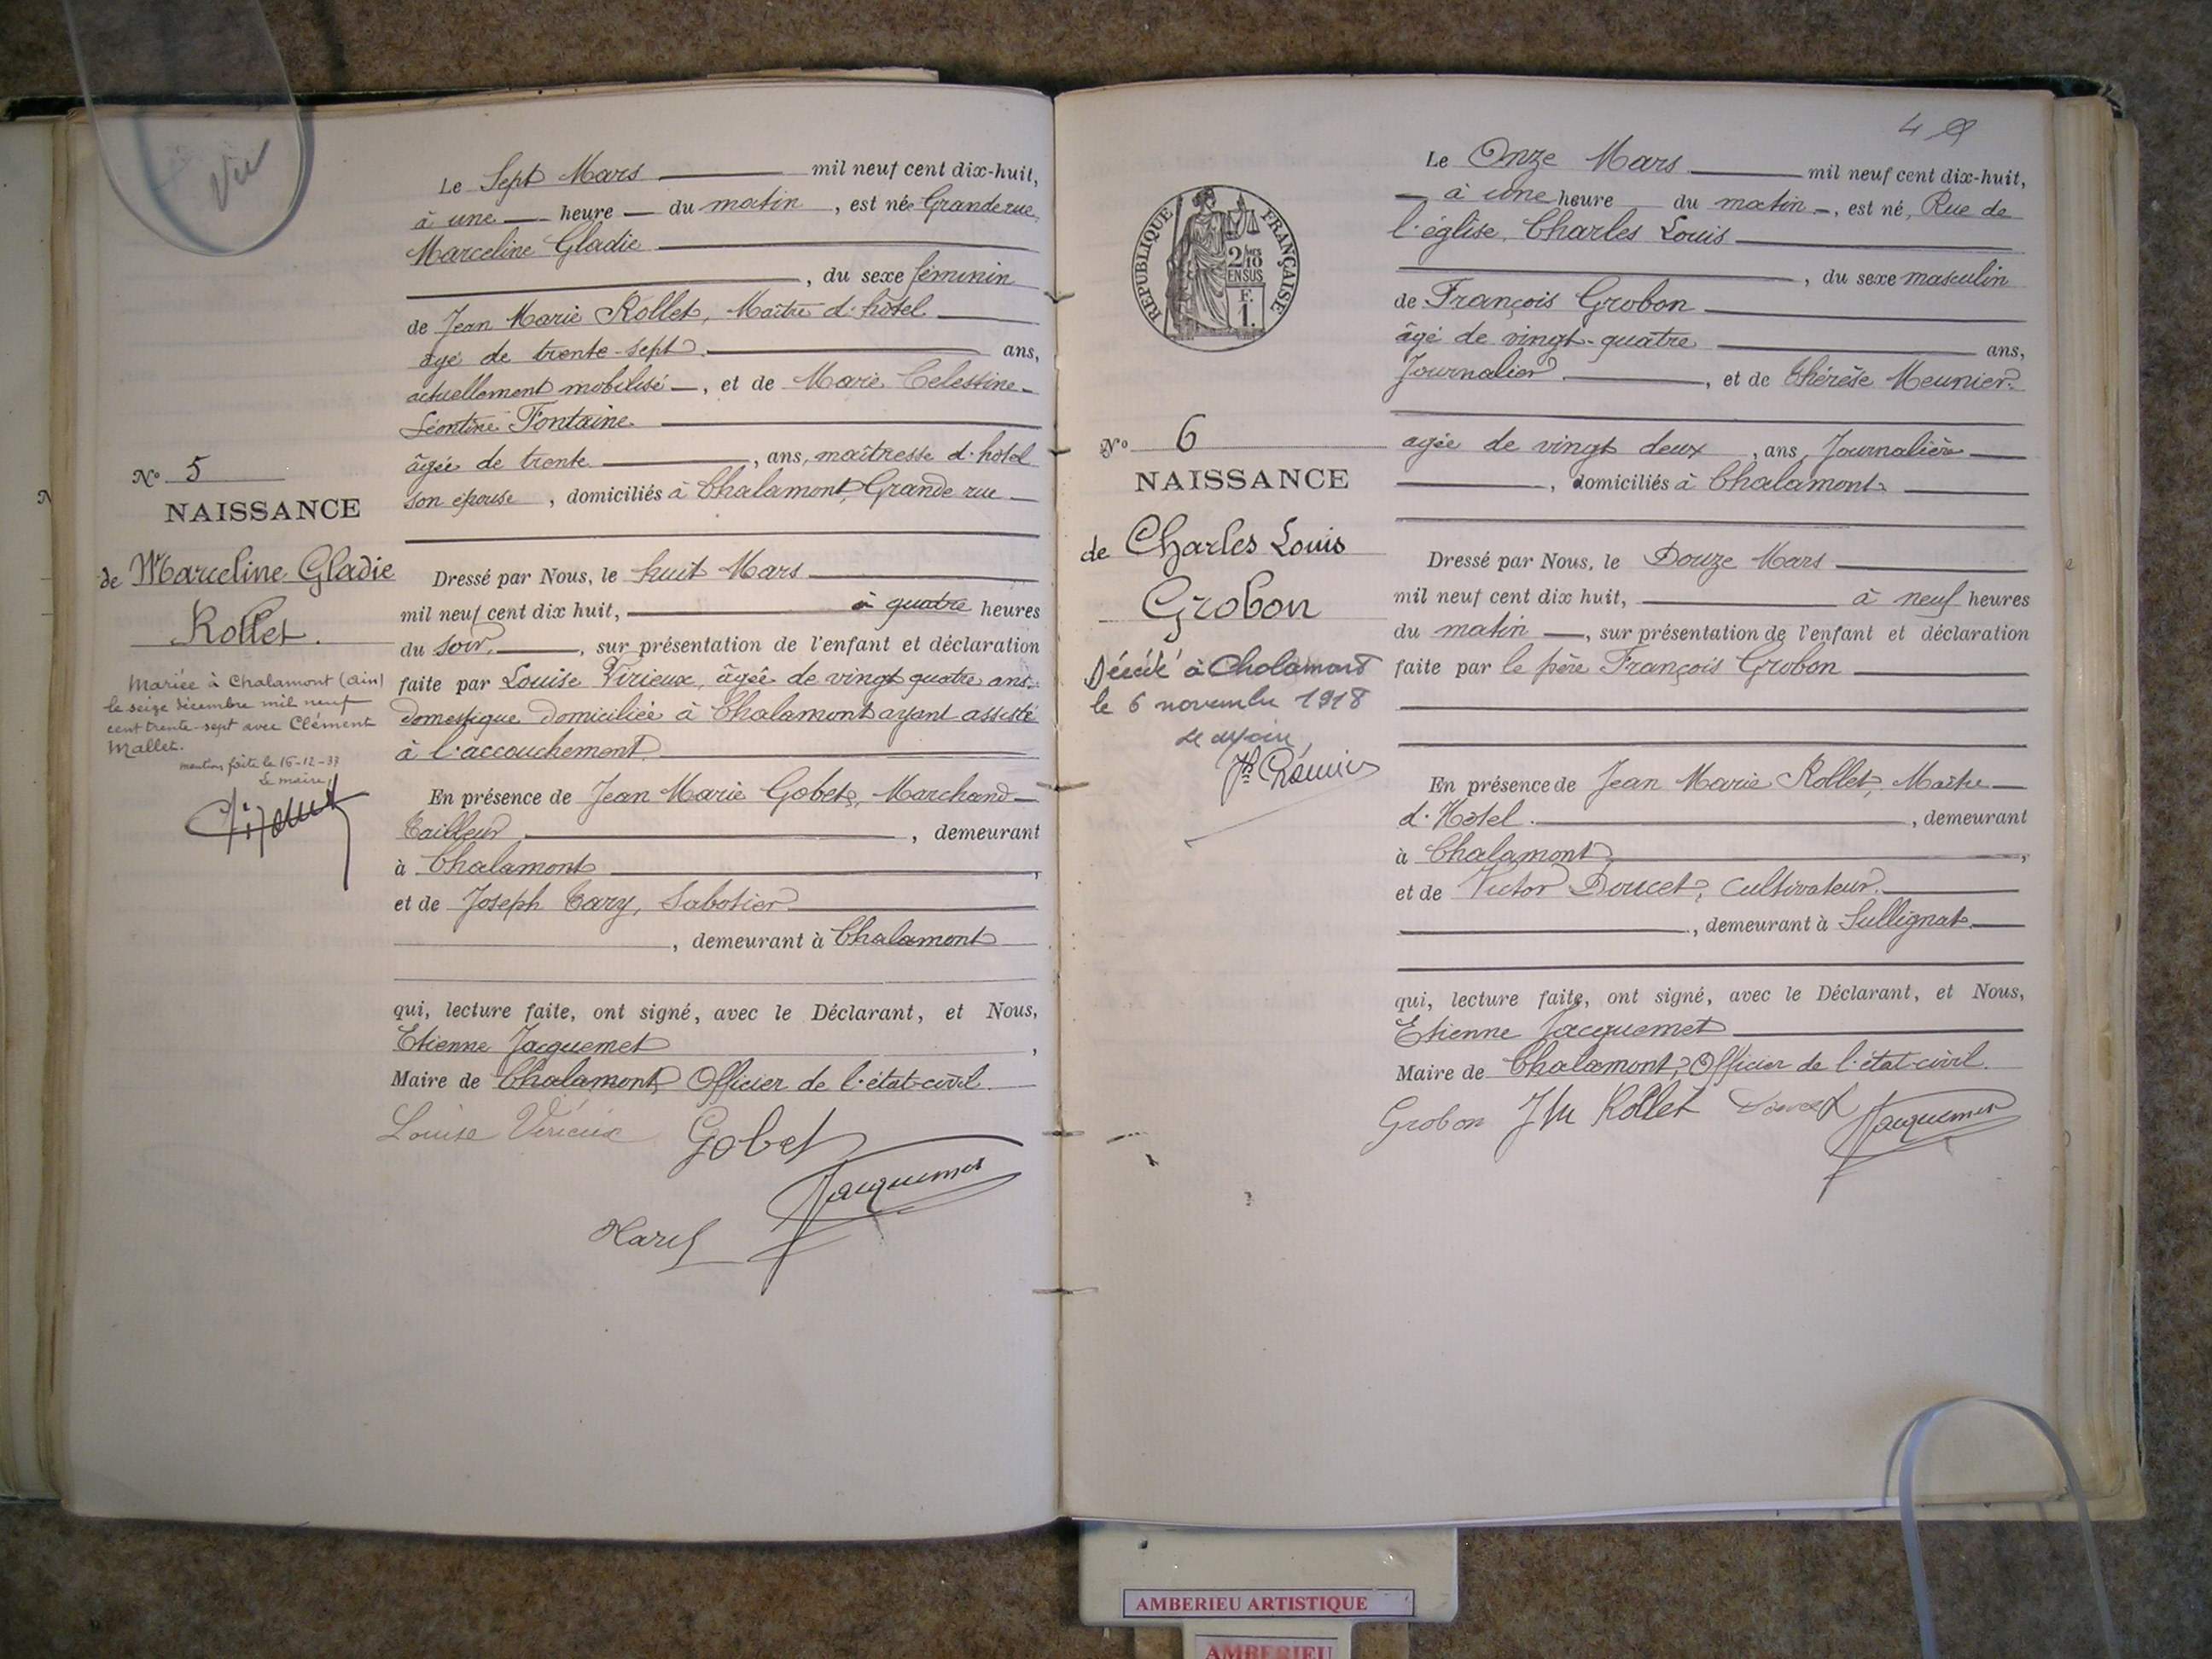 Vu
Le Sept Mars mil neuf cent dix-huit,
à une heure du matin, est née Grande rue,
Marceline Gladie
, du sexe féminin
de Jean Marie Rollet, Maître d'hôtel
âgé de trente-sept ans,
actuellement mobilisé, et de Marie Celestine
Léontine Fontaine
âgée de trente, ans, maîtresse d'hôtel
son épouse, domiciliés à Chalamont, Grande rue
N° 5
NAISSANCE
de Marceline Gladie
Rollet.
Mariée à Chalamont (Ain)
le seize décembre mil neuf
cent trente-sept avec Clément
Mallet.
mention faite le 16-12-37
Le maire,
Dressé par Nous, le huit Mars
mil neuf cent dix huit, à quatre heures
du soir, sur présentation de l'enfant et déclaration
faite par Louise Virieux, âgée de vingt quatre ans,
domestique domiciliée à Chalamont ayant assisté
à l'accouchement
En présence de Jean Marie Gobet, Marchand
Tailleur, demeurant
à Chalamont,
et de Joseph Tary, Sabotier
, demeurant à Chalamont
qui, lecture faite, ont signé, avec le Déclarant, et Nous,
Etienne Jacquemet,
Maire de Chalamont, Officier de l'état-civil
Louise Virieux Gobet
Jacquemet
4
REPUBLIQUE FRANÇAISE
2/10
EN SUS
F.
1.
Le Onze Mars mil neuf cent dix-huit,
à une heure du matin, est né, Rue de
l'église, Charles Louis
, du sexe masculin
de François Grobon
âgé de vingt-quatre ans,
Journalier, et de Thérèse Meunier
agée de vingt deux, ans, Journalière
, domiciliés à Chalamont
N° 6
NAISSANCE
de Charles Louis
Grobon
Décédé à Chalamont
le 6 novembre 1918
Le maire,
Dressé par Nous, le Douze Mars
mil neuf cent dix huit, à neuf heures
du matin, sur présentation de l'enfant et déclaration
faite par le père François Grobon
En présence de Jean Marie Rollet, Maître
d'Hôtel, demeurant
à Chalamont,
et de Victor Doucet, Cultivateur
, demeurant à Sullignat
qui, lecture faite, ont signé, avec le Déclarant, et Nous,
Etienne Jacquemet
Maire de Chalamont, Officier de l'état-civil.
Grobon JM Rollet Doucet Jacquemet
AMBERIEU ARTISTIQUE
AMBERIEU